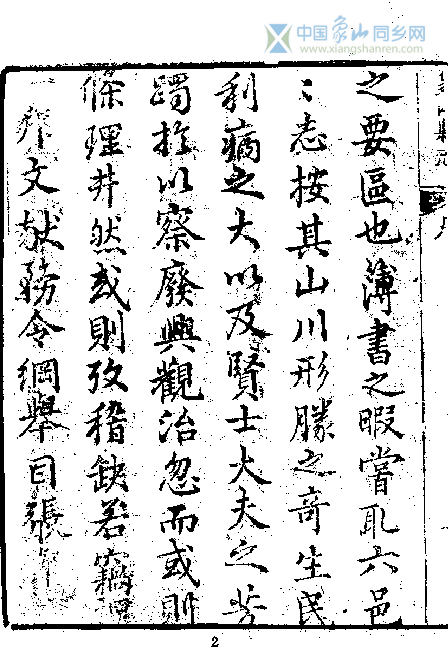 中国象山同乡网
www.xiangshanren.com
之要區也薄書之暇嘗取六邑
〻志按其山川形勝之奇生民
利病之大以及賢士大夫之芳
躅於以察廢興觀治忽而或則
條理井然或則攷稽缺若竊
一郡文献務令綱舉目張
2